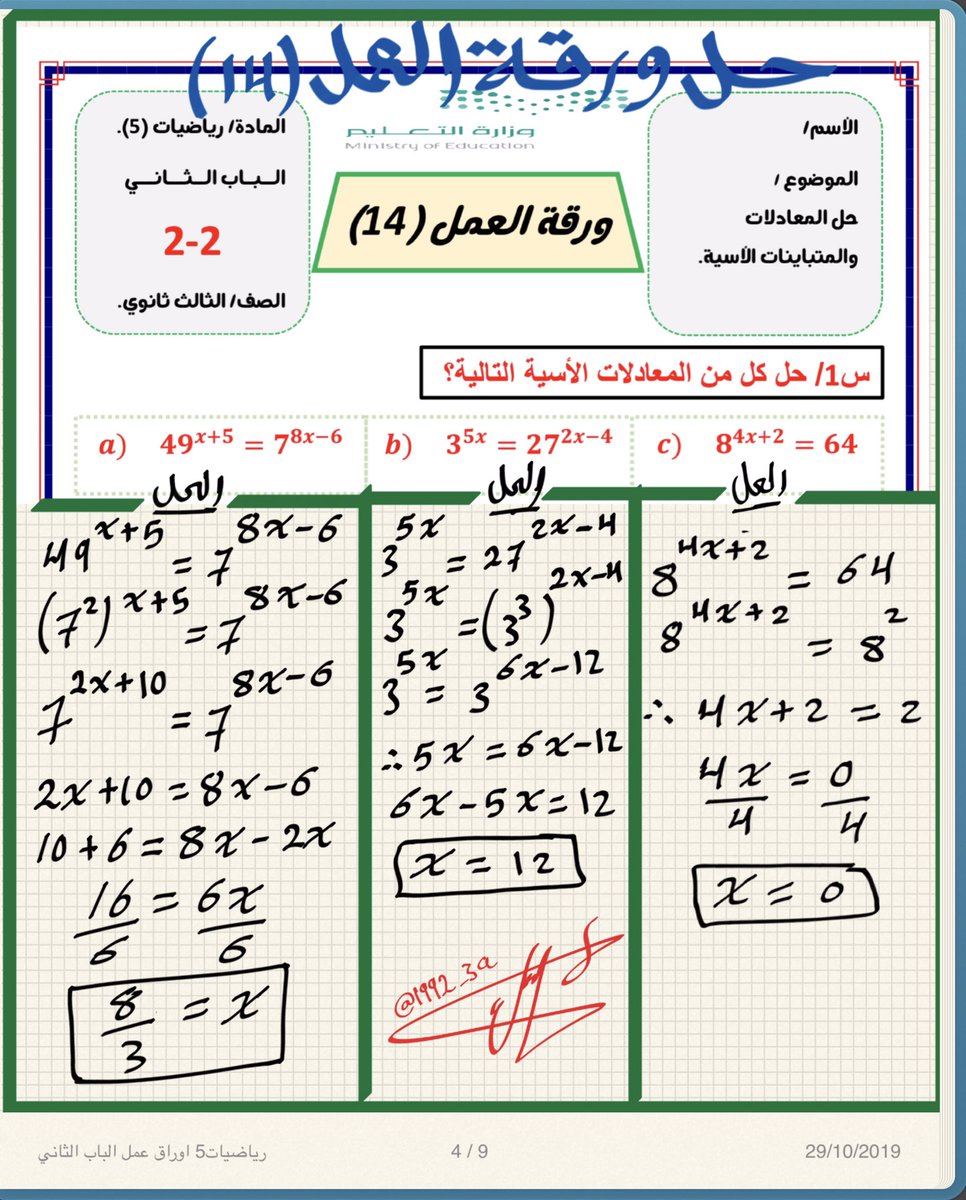 حل ورقة العمل (14)
الأسم/
الموضوع /
حل المعادلات
والمتباينات الأسية.
وزارة التعليم
Ministry of Education
ورقة العمل (14)
المادة/ رياضيات (5).
الباب الثاني
2-2
الصف/ الثالث ثانوي.
س1/ حل كل من المعادلات الأسية التالية؟
a) 49^{x+5} = 7^{8x−6}
b) 3^{5x} = 27^{2x−4}
c) 8^{4x+2} = 64
الحل
49^{x+5} = 7^{8x−6}
(7^2)^{x+5} = 7^{8x−6}
7^{2x+10} = 7^{8x−6}
2x+10 = 8x−6
10+6 = 8x−2x
16/6 = 6x/6
8/3 = x
الحل
3^{5x} = 27^{2x−4}
3^{5x} = (3^3)^{2x−4}
3^{5x} = 3^{6x−12}
∴ 5x = 6x−12
6x−5x = 12
x = 12
@1992_3a
الحل
8^{4x+2} = 64
8^{4x+2} = 8^2
∴ 4x+2 = 2
4x/4 = 0/4
x = 0
رياضيات5 اوراق عمل الباب الثاني
4 / 9
29/10/2019